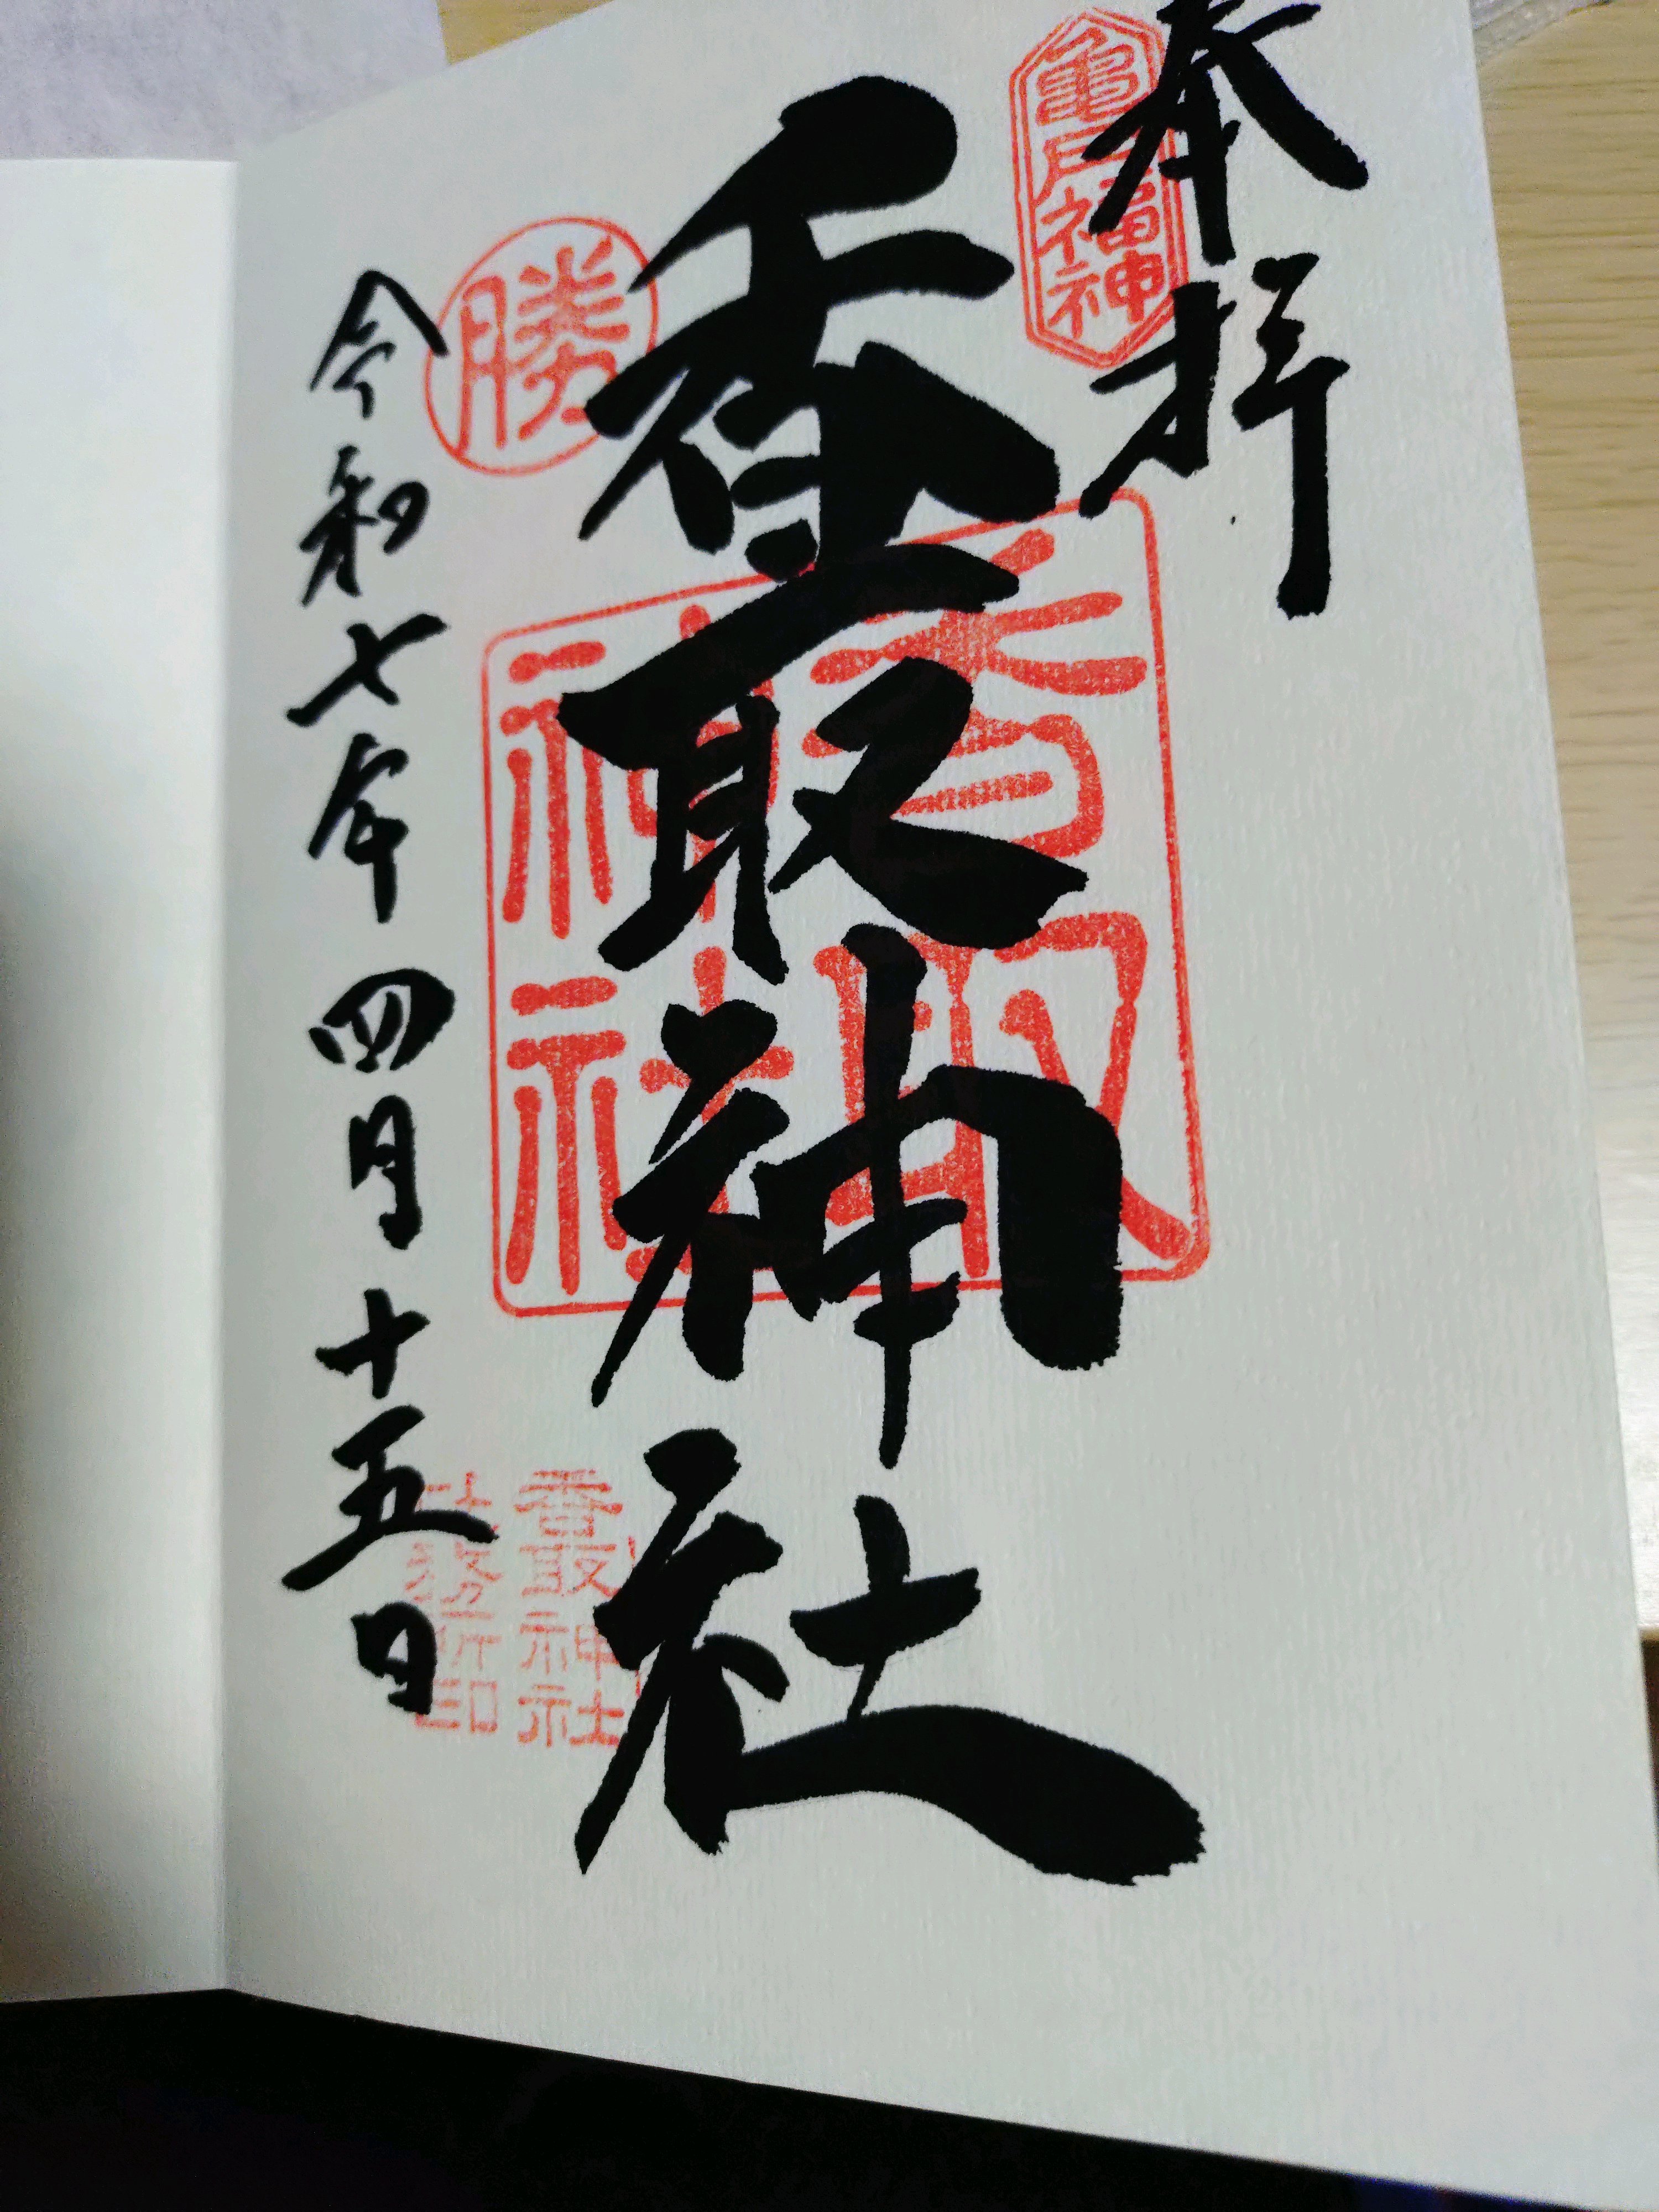 奉拝
亀戸福神
香取神社
香取神社
勝
香取神社
社務所印
令和七年四月十五日